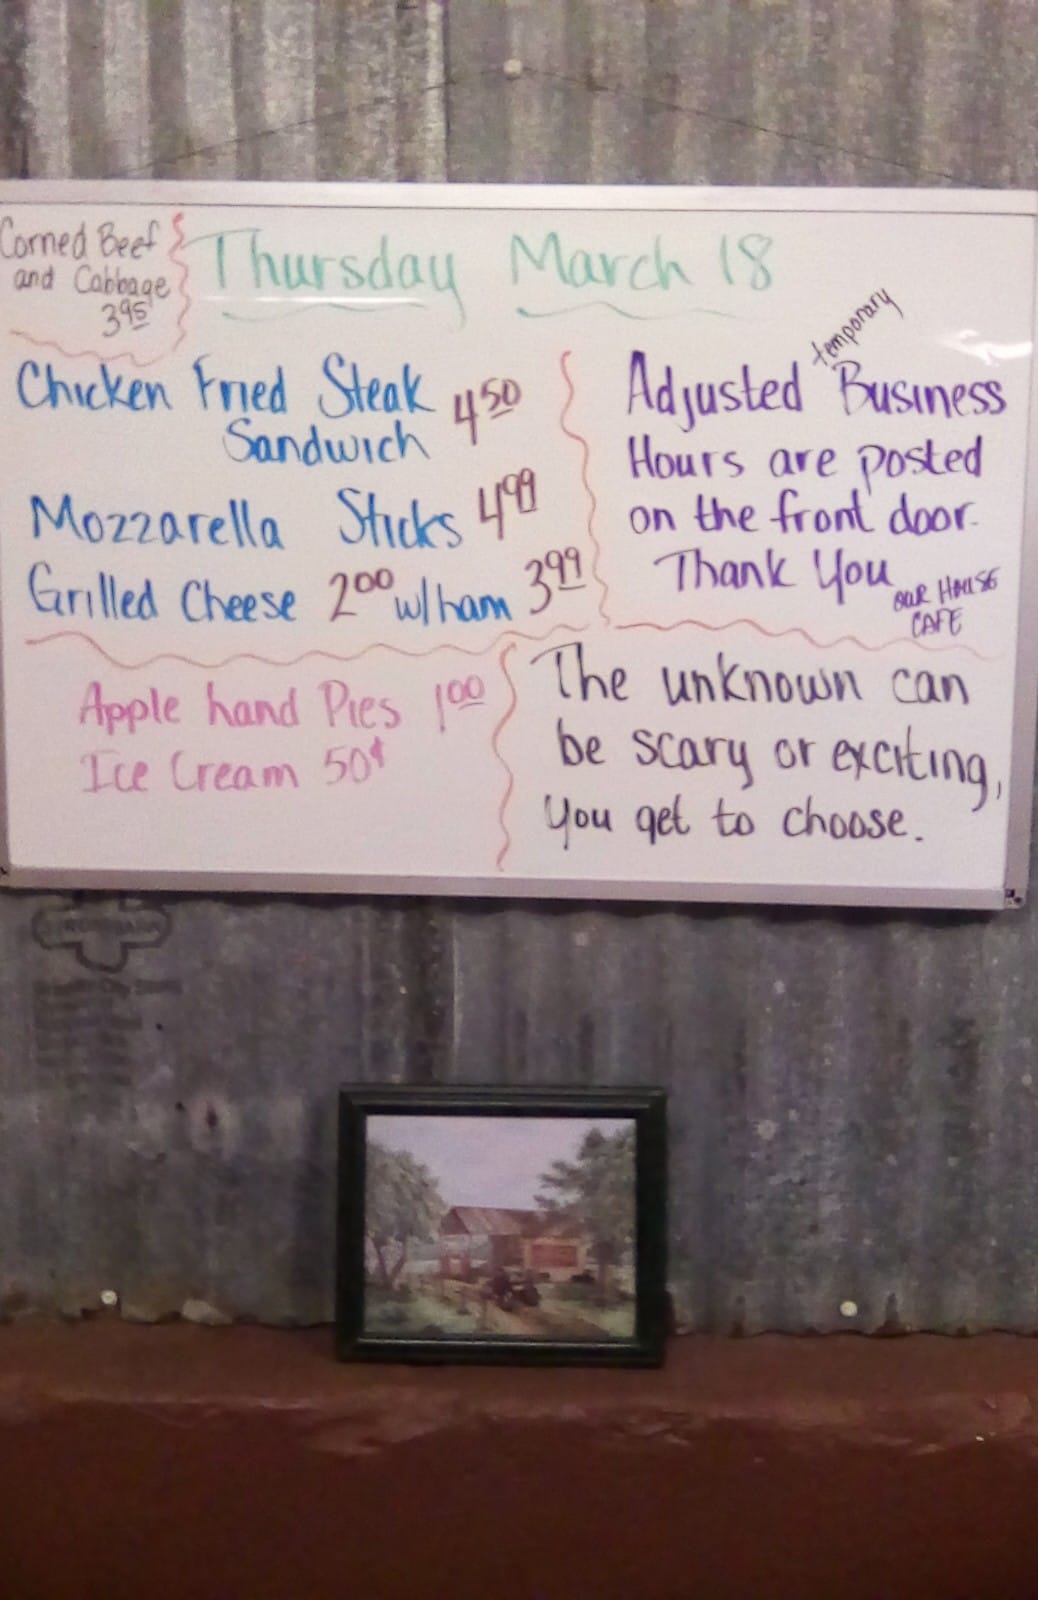 Corned Beef
and Cabbage
3.95
Thursday March 18
Chicken Fried Steak
Sandwich 4.50
Mozzarella Sticks 4.99
Grilled Cheese 2.00 w/ham 3.99
temporary
Adjusted Business
Hours are posted
on the front door.
Thank You
OUR HOUSE
CAFE
Apple hand Pies 1.00
Ice Cream 50¢
The unknown can
be scary or exciting,
you get to choose.